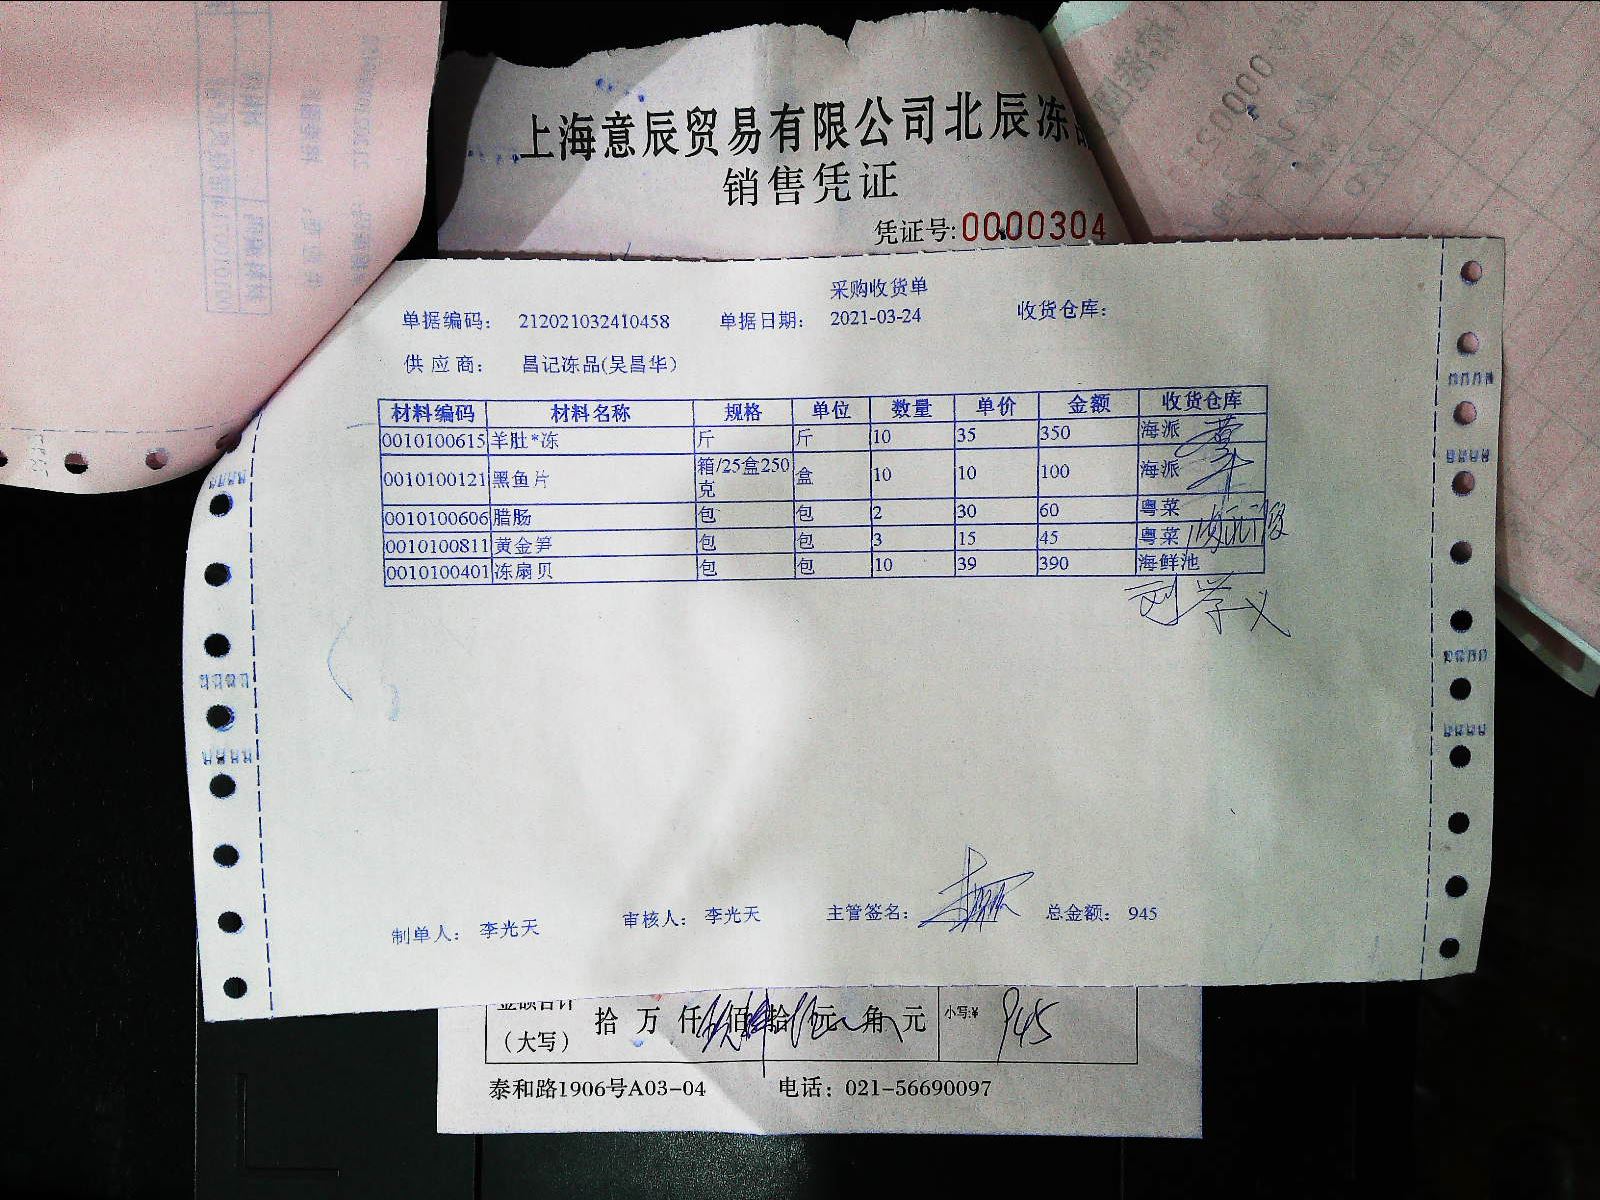 上海意辰贸易有限公司北辰冻
销售凭证
凭证号:0000304
采购收货单
单据编码： 212021032410458 单据日期： 2021-03-24 收货仓库：
供应商： 昌记冻品(吴昌华)
材料编码 材料名称 规格 单位 数量 单价 金额 收货仓库
0010100615 羊肚*冻 斤 斤 10 35 350 海派
0010100121 黑鱼片 箱/25盒250克 盒 10 10 100 海派
0010100606 腊肠 包 包 2 30 60 粤菜
0010100811 黄金笋 包 包 3 15 45 粤菜
0010100401 冻扇贝 包 包 10 39 390 海鲜池
刘学义
制单人： 李光天 审核人： 李光天 主管签名： 总金额： 945
金额合计
（大写） 拾万仟佰拾元角元 小写:¥ 945
泰和路1906号A03-04 电话：021-56690097